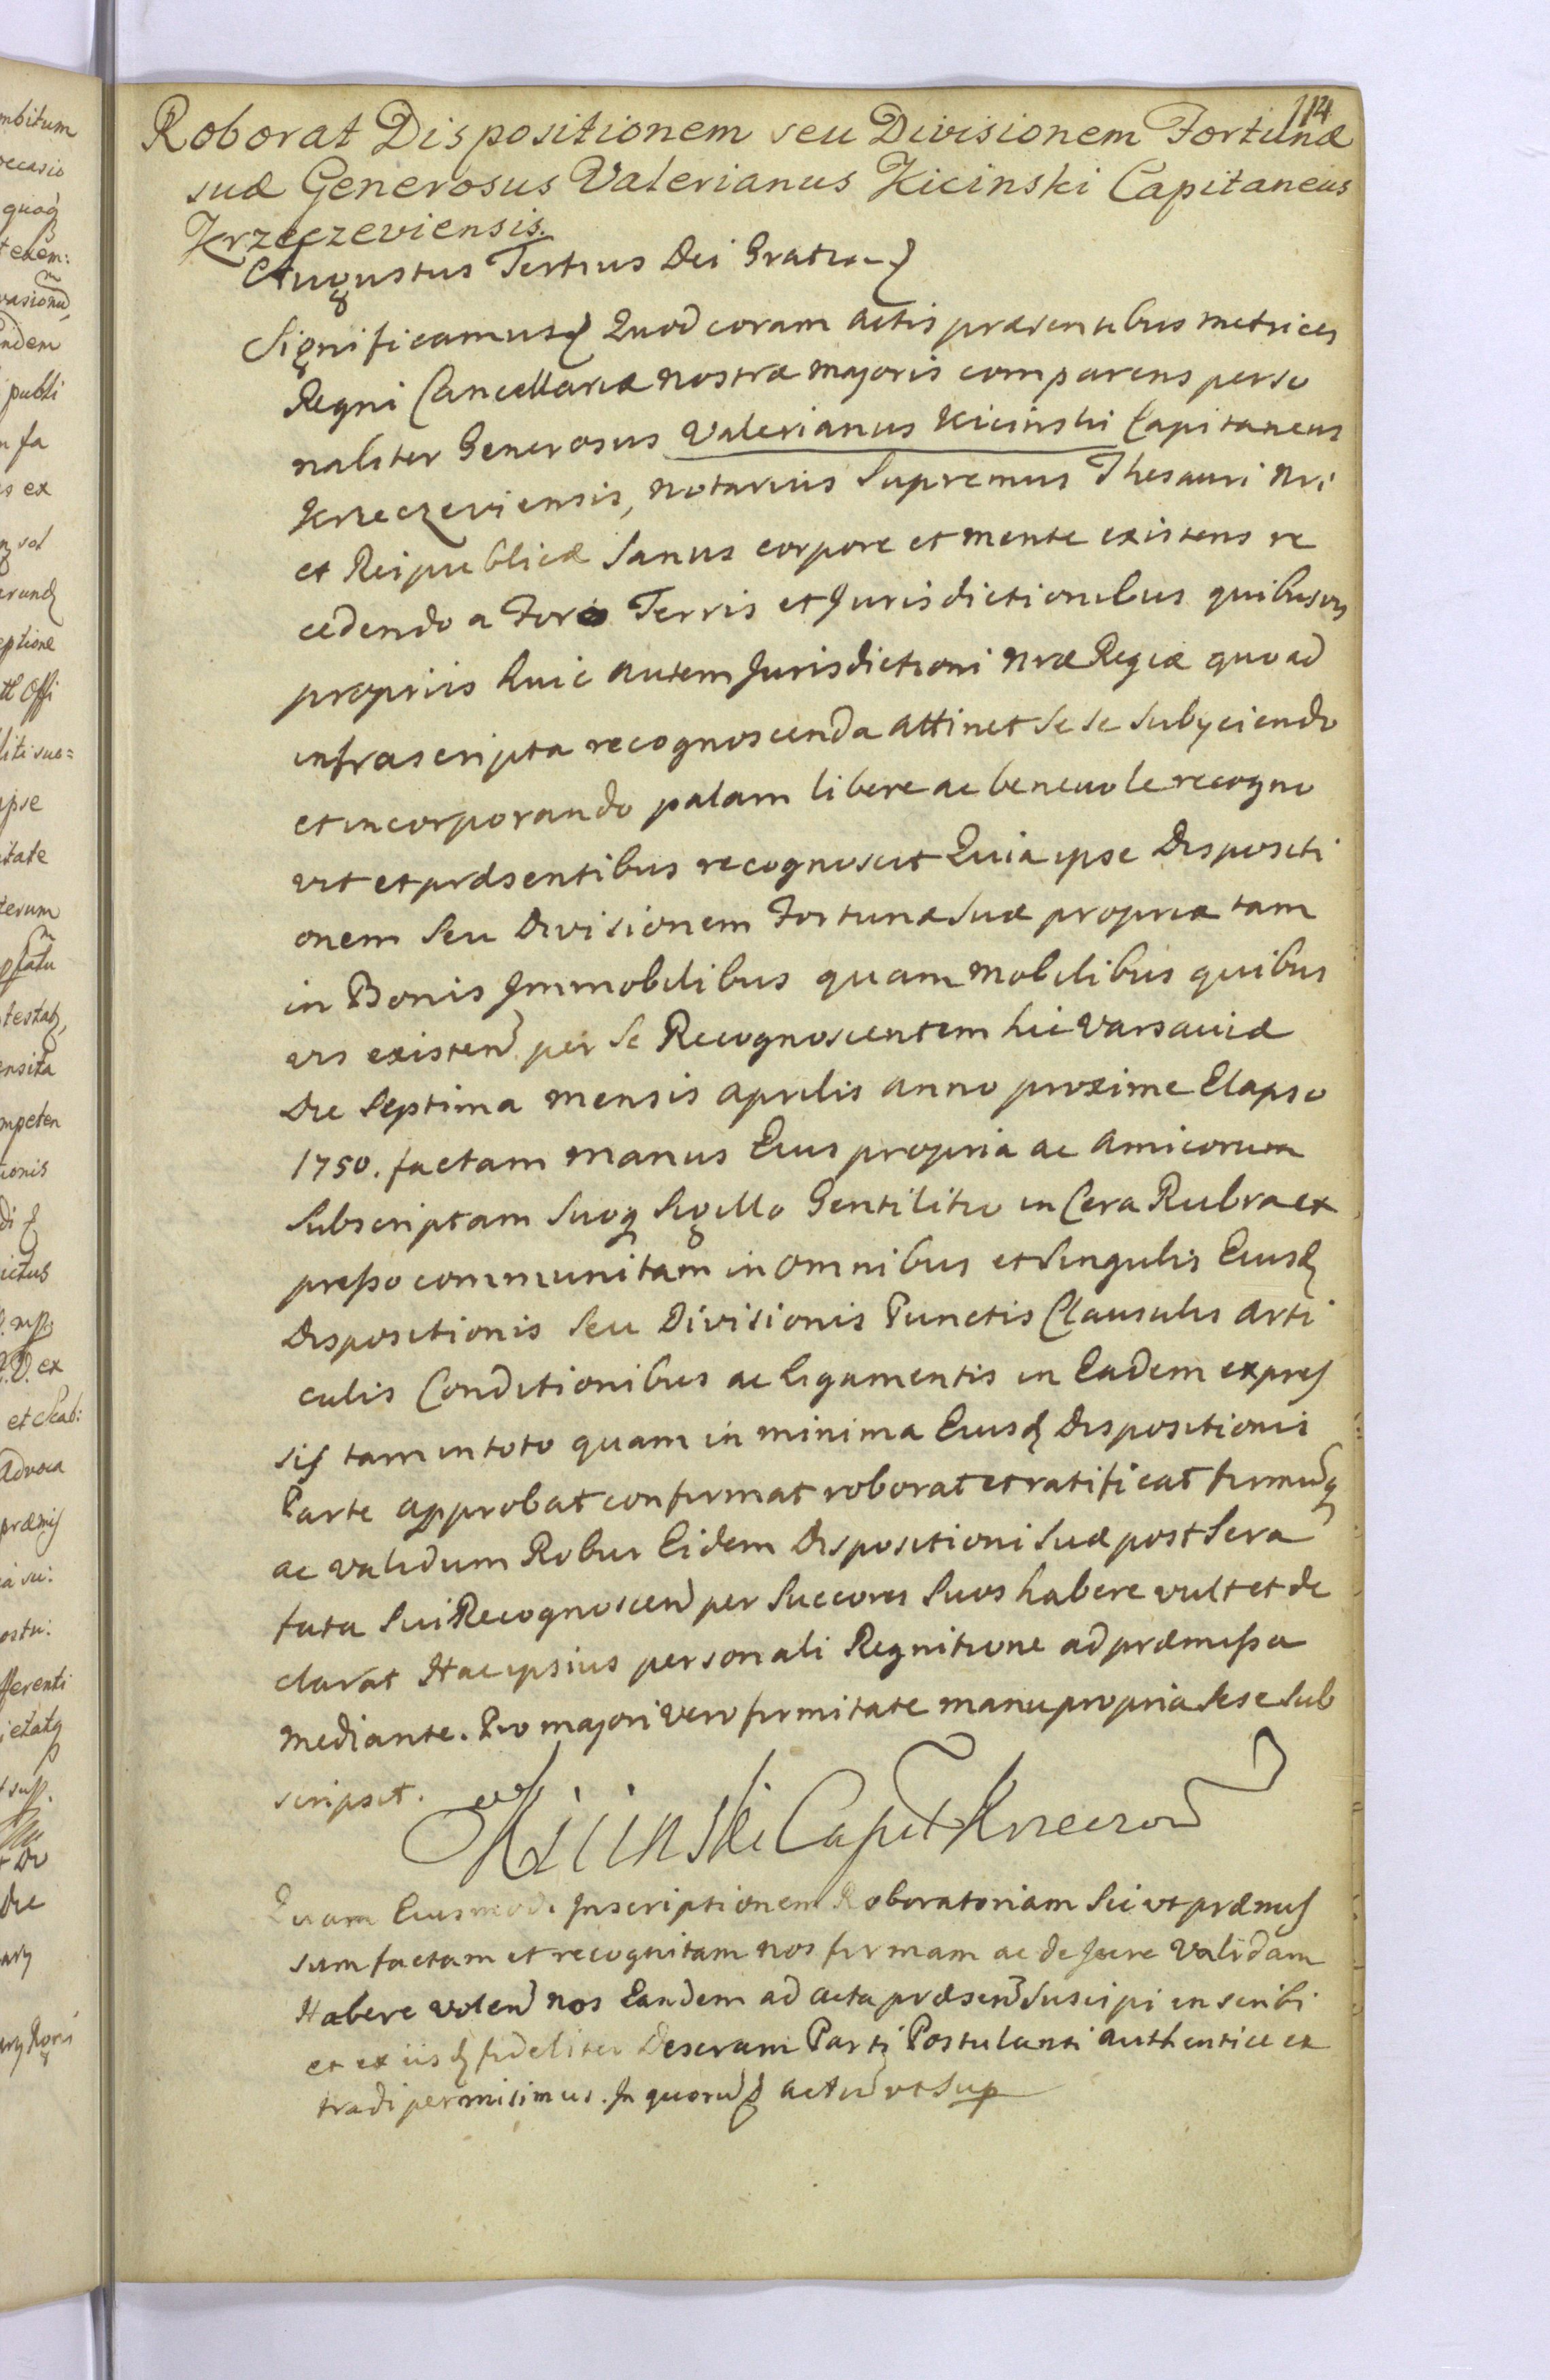 114
Roborat Dispositionem seu Divisionem Fortunæ
suæ Generosus Valerianus Kicinski Capitaneus
Krzeczeviensis.
Augustus Tertius Dei Gratia
Significamus Quod coram actis præsentibus metrices
Regni Cancellariæ nostræ majoris comparens perso
naliter Generosus Valerianus Kicinski Capitaneus
Krzeczeviensis, Notarius Supremus Thesauri Nri
et Reipublicæ Sanus corpore et mente existens re
cedendo a Foro Terris et Jurisdictionibus quibusvis
propriis huic autem Jurisdictioni nræ Regiæ quoad
infrascripta recognoscenda attinet se se subyciendo
et incorporando palam libere ac benevole recogno
vit et præsentibus recognoscit Quia ipse Dispositi
onem Seu Divisionem Fortunæ Suæ propriæ tam
in Bonis Immobilibus quam Mobilibus quibus
vis existen per Se Recognoscentem hic Varsaviæ
Die Septima mensis Aprilis anno proxime Elapso
1750. factam manus Eius propria ac amicorum
Subscriptam Suoq Sigillo Gentilitio in Cera Rubra ex
presso communitam in omnibus et Singulis Eiusd
Dispositionis Seu Divisionis Punctis Clausulis Arti
culis Conditionibus ac ligamentis in Eadem expres
sis tam in toto quam in minima Eiusd Dispositionis
Parte approbat confirmat roborat et ratificat firmumq
ac validum Robur Eidem Dispositioni Suæ post Sera
fata Sui Recognoscen per Succores Suos habere vult et de
clarat Hac ipsius personali Regnitione ad præmissa
mediante. Pro majori vero firmitate manu propria Sese Sub
scripsit.
Kicinski Capit Krzeczow
Quam Eiusmodi Inscriptionem Roboratoriam Sic ut præmis
sum factam et recognitam nos firmam ac de Jure Validam
Habere volen nos Eandem ad acta præsen Suscipi inscribi
et ex iisd fideliter Deseram Parti Postulanti authentice ex
tradi permisimus. In quorum actu ut Sup